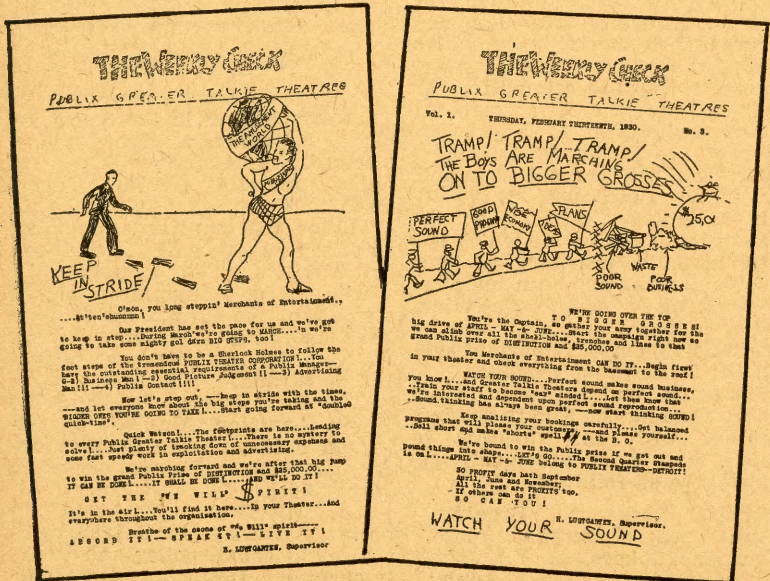 THE WEEKLY CHECK
PUBLIX GREATER TALKIE THEATRES
THE AMUSEMENT
WORLD
KEEP
IN
STRIDE
C'mon, you long steppin' Merchants of Entertainment..
....at'ten'shunnnnn!
Our President has set the pace for us and we've got
to keep in step....During March we're going to MARCH....'n we're
going to take some mighty gol darn BIG STEPS, too!
You don't have to be a Sherlock Holmes to follow the
foot steps of the tremendous PUBLIX THEATER CORPORATION!...You
have the outstanding essential requirements of a Publix Manager--
Business Man!--2) Good Picture Judgement!! --3) Advertising
Man!!! --4) Public Contact!!!!
Now let's step out, ---keep in stride with the times,
---and let everyone know about the big steps you're taking and the
BIGGER ONES YOU'RE GOING TO TAKE!....Start going forward at "double
quick-time".
Quick Watson!....The footprints are here....Leading
to every Publix Greater Talkie Theater!...There is no mystery to
solve!...Just plenty of tracking down of unnecessary expenses and
some fast speedy work in exploitation and advertising.
We're marching forward and we're after that big jump
to win the grand Publix Prize of DISTINCTION and $25,000.00....
IT CAN BE DONE!....IT SHALL BE DONE!....AND WE'LL DO IT!
GET THE "WE WILL" $PIRIT!
It's in the air!....You'll find it here....In your Theater...And
everywhere throughout the organization.
Breathe of the ozone of "We Will" spirit----
ABSORB IT!-- SPEAK IT!-- LIVE IT!
H. LUSTGARTEN, Supervisor
THE WEEKLY CHECK
PUBLIX GREATER TALKIE THEATRES
Vol. 1. THURSDAY, FEBRUARY THIRTEENTH, 1930. No. 3.
TRAMP! TRAMP! TRAMP!
THE BOYS ARE MARCHING
ON TO BIGGER GROSSES
PERFECT
SOUND
GOOD
PROGRAM
WISE
ECONOMY
IDEAS
PLANS
$25,0
POOR
SOUND
WASTE
POOR
BUSINESS
WE'RE GOING OVER THE TOP
TO BIGGER GROSSES!
You're the Captain, so gather your army together for the
big drive of APRIL - MAY -&- JUNE....Start the campaign right now so
we can climb over all the shell-holes, trenches and lines to that
grand Publix prize of DISTINCTION and $25,000.00
You Merchants of Entertainment CAN DO IT...Begin first
in your theater and check everything from the basement to the roof!
WATCH YOUR SOUND....Perfect sound makes sound business,
you know!....and Greater Talkie Theaters depend on perfect sound...
..Train your staff to become "ear" minded!...Let them know that
we're interested and dependent upon perfect sound reproduction...
..Sound thinking has always been great, ---now start thinking SOUND!
Keep analizing your bookings carefully...Get balanced
programs that will please your customers ---and please yourself...
..Sell short and make "shorts" spell $$ at the B. O.
We're bound to win the Publix prize if we get out and
pound things into shape....LET'S GO!....The Second Quarter Stampede
is on!....APRIL - MAY -&- JUNE belong to PUBLIX THEATERS--DETROIT!
30 PROFIT days hath September
April, June and November;
All the rest are PROFITS too,
If others can do it
SO CAN YOU!
H. LUSTGARTEN, Supervisor.
WATCH YOUR SOUND